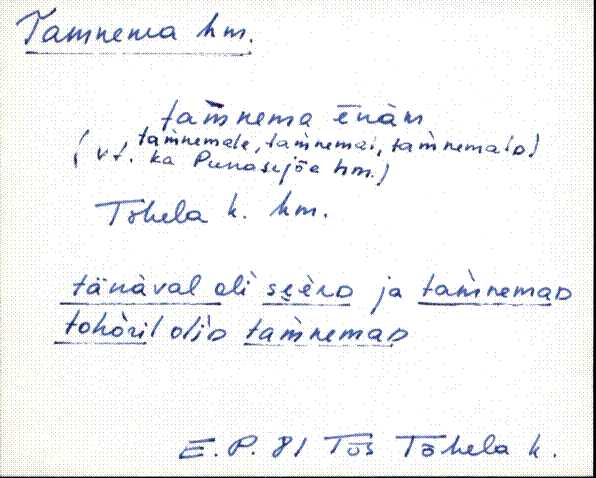 Tamnema hm.
tam̀nema ēnàm
(vt. tam̀nemale, tam̀nemai, tam̀nemaid)
ka Punasejõe hm.)
Tõhela k. hm.
tänàval oli sèero ja tam̀nemaD
tohòril oljD tam̀nemaD
E.P. 81 Tõs Tõhela k.